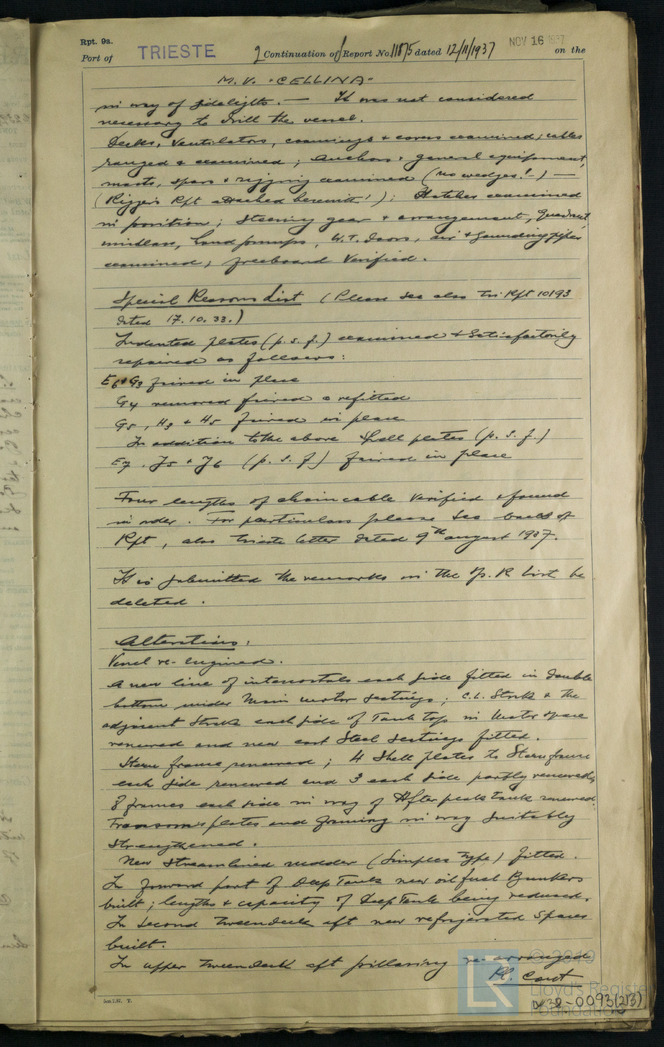 Rpt. 9a.
Port of TRIESTE 2 Continuation of Report No. 11875 dated 12/11/1937 NOV 16 1937 on the
M.V. "CELLINA"
in way of sidelights. — It was not considered
necessary to drill the vessel.
Decks, Ventilators, coamings & covers examined; cables
ranged & examined; Anchors & general equipment,
masts, spars & rigging examined (no wedges!) —
(Rigger's Rpt attached herewith!); Hatches examined
in position; Steering gear & arrangement, Quadrant,
windlass, hand pumps, W.T. Doors, air & sounding pipes
examined; freeboard Verified.
Special Reasons List (Please see also Tri. Rpt 10193
dated 17.10.33.)
Indented plates (p.s.f.) examined & Satisfactorily
repaired as follows:
E6 & G3 faired in place
G4 removed faired & refitted
G5, H3 & H5 faired in place
In addition to the above Shell plates (p.s.f.)
E7, J5 & J6 (p.s.f.) faired in place
Four lengths of chain cable verified & found
in order. For particulars please see back of
Rpt, also Trieste letter dated 9th August 1937.
It is submitted the remarks in the Sp. R List be
deleted.
Alterations.
Vessel re-engined.
A new line of intercostals each side fitted in double
bottom under Main motor seatings; C.L. Strake & the
adjacent Strake each side of Tank top in Motor space
renewed and new cast Steel seatings fitted.
Stern frame renewed; 4 Shell plates to Stern frame
each side renewed and 3 each side partly renewed,
8 frames each side in way of After peak tank renewed.
Transom plates and framing in way suitably
Strengthened.
New Streamlined rudder (Simplex type) fitted.
In forward part of Deep Tank new oil fuel Bunkers
built; lengths & capacity of Deep Tank being reduced.
In second Tweendeck aft new refrigerated spaces
built.
In upper tweendeck aft pillaring re-arranged
Pl. Cont
© 2019
LR Lloyd's Register
Foundation
W38-0093(2/3)